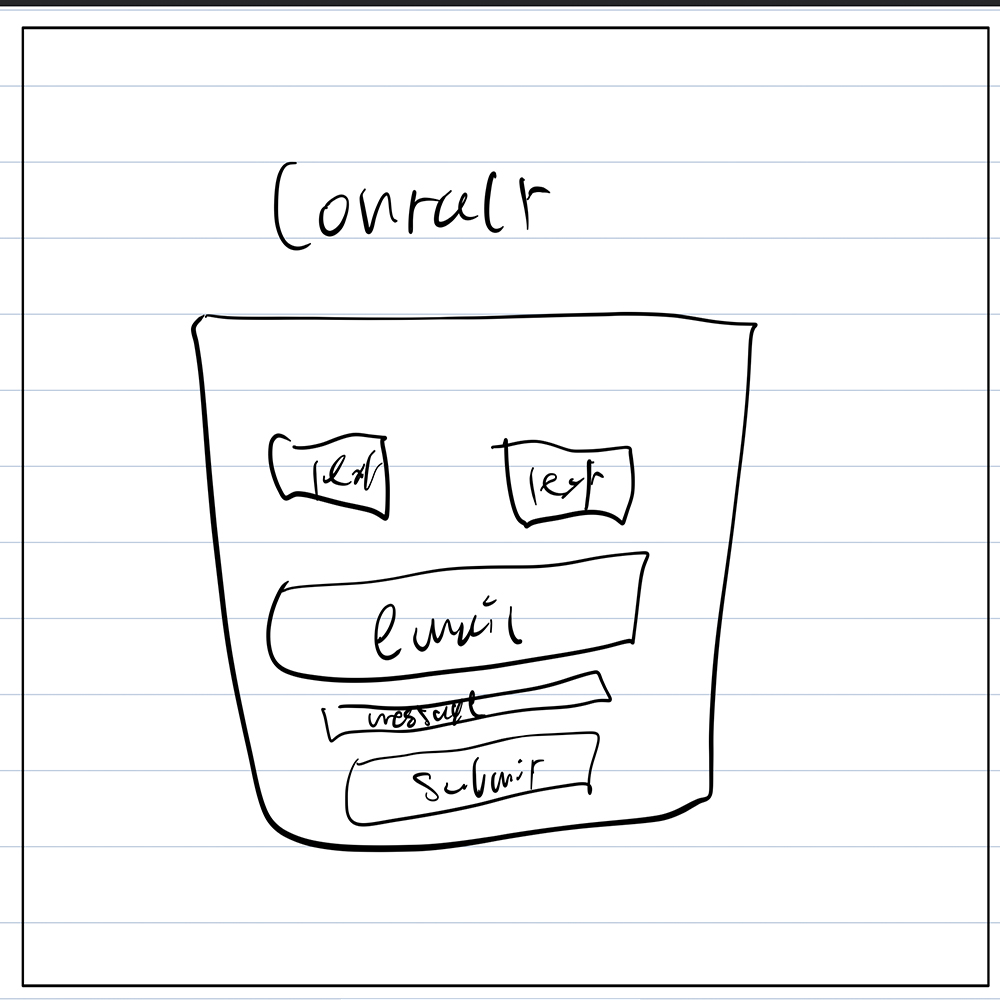 Contact
Text Text
email
message
Submit